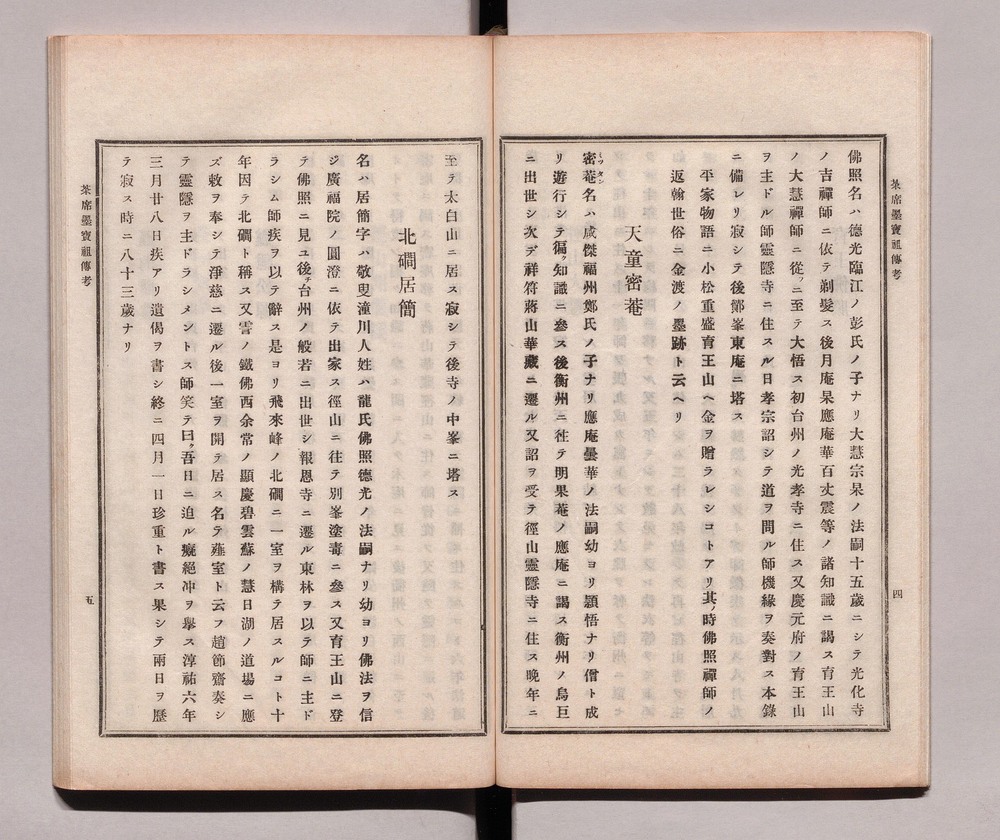 茶席墨寶祖傳考
佛照名ハ德光臨江ノ彭氏ノ子ナリ大慧宗杲ノ法嗣十五歲ニシテ光化寺
ノ吉禪師ニ依テ剃髮ス後月庵杲應庵華百丈震等ノ諸知識ニ謁ス育王山
ノ大慧禪師ニ從ッニ至テ大悟ス初台州ノ光孝寺ニ住ス又慶元府ノ育王山
ヲ主ドル師靈隱寺ニ住スル日孝宗詔シテ道ヲ問ル師機緣ヲ奏對ス本錄
ニ備レリ寂シテ後鄮峯東庵ニ塔ス
平家物語ニ小松重盛育王山ヘ金ヲ贈ラレシコトアリ其ノ時佛照禪師ノ
返翰世俗ニ金渡ノ墨跡ト云ヘリ
天童密菴
密菴名ハ咸傑福州鄭氏ノ子ナリ應庵曇華ノ法嗣幼ヨリ頴悟ナリ僧ト成
リ遊行シテ徧ク知識ニ參ス後衡州ニ徃テ明果菴ノ應庵ニ謁ス衡州ノ烏巨
ニ出世シ次デ祥符蔣山華藏ニ遷ル又詔ヲ受テ徑山靈隱寺ニ住ス晚年ニ
四
至テ太白山ニ居ス寂シテ後寺ノ中峯ニ塔ス
北磵居簡
名ハ居簡字ハ敬叟潼川人姓ハ龍氏佛照德光ノ法嗣ナリ幼ヨリ佛法ヲ信
ジ廣福院ノ圓澄ニ依テ出家ス徑山ニ往テ別峯塗毒ニ參ス又育王山ニ登
テ佛照ニ見ユ後チ台州ノ般若ニ出世シ報恩寺ニ遷ル東林ヲ以テ師ニ主ド
ラシム師疾ヲ以テ辭ス是ヨリ飛來峰ノ北磵ニ一室ヲ構テ居スルコト十
年因テ北磵ト稱ス又霅ノ鐵佛西余常ノ顯慶碧雲蘇ノ慧日湖ノ道場ニ應
ズ敕ヲ奉シテ淨慈ニ遷ル後一室ヲ開テ居ス名テ薤室ト云フ趙節齋奏シ
テ靈隱ヲ主ドラシメントス師笑テ曰ク吾日ニ迫ル癡絕冲ヲ擧ス淳祐六年
三月廿八日疾アリ遺偈ヲ書シ終ニ四月一日珍重ト書ス果シテ兩日ヲ歷
テ寂ス時ニ八十三歲ナリ
茶席墨寶祖傳考
五